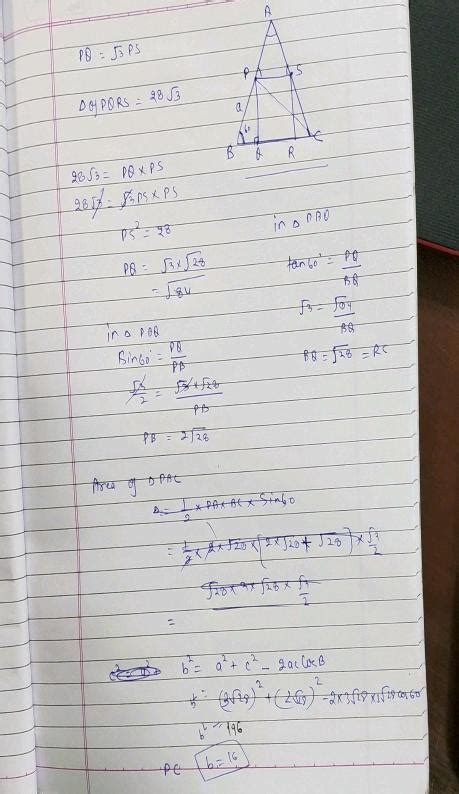 PQ = √3 PS
A
P
S
a
60
B
Q
R
C
Δ of PQRS = 28√3
28√3 = PQ × PS
28√3 = √3 PS × PS
PS² = 28
PQ = √3 × √28
= √84
in Δ PBQ
tan60° = PQ/BQ
√3 = √84/BQ
BQ = √28 = RC
in Δ PBQ
Sin60° = PQ/PB
√3/2 = √3 × √28/PB
PB = 2√28
Area of Δ PBC
Δ = 1/2 × PB × BC × Sin60
= 1/2 × 2 × √28 × [2 × √28 + √28] × √3/2
√28 × 3 × √28 × √3/2
=
b² = a² + c² - 2ac CosB
b² = (3√28)² + (2√28)² - 2×3√28×2√28 cos60
b² = 196
PC b = 16